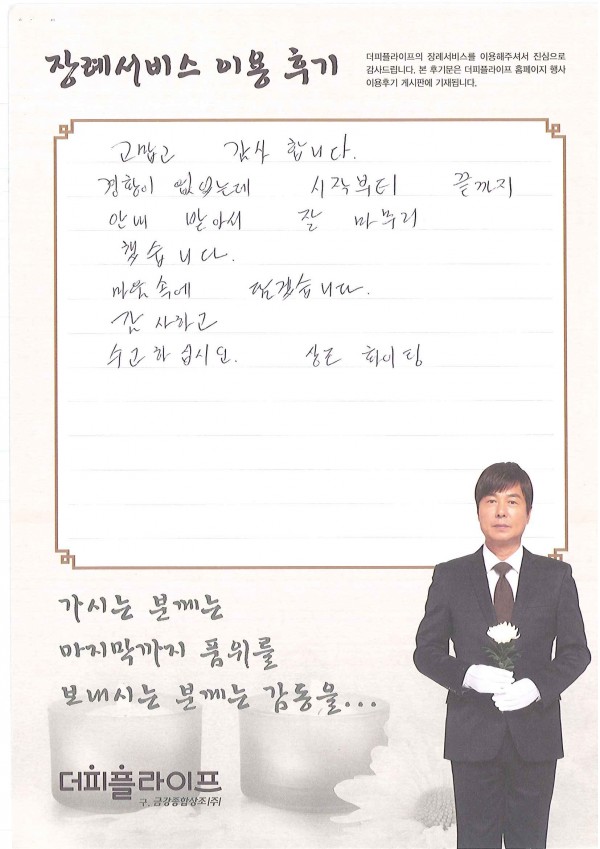 장례서비스 이용 후기
더피플라이프의 장례서비스를 이용해주셔서 진심으로
감사드립니다. 본 후기문은 더피플라이프 홈페이지 행사
이용후기 게시판에 기재됩니다.
고맙고 감사 합니다.
경황이 없었는데 시작부터 끝까지
안내 받아서 잘 마무리
했습니다.
마음속에 담겠습니다.
감사하고
수고하십시요. 상조 화이팅
가시는 분께는
마지막까지 품위를
보내시는 분께는 감동을...
더피플라이프
구. 금강종합상조(주)